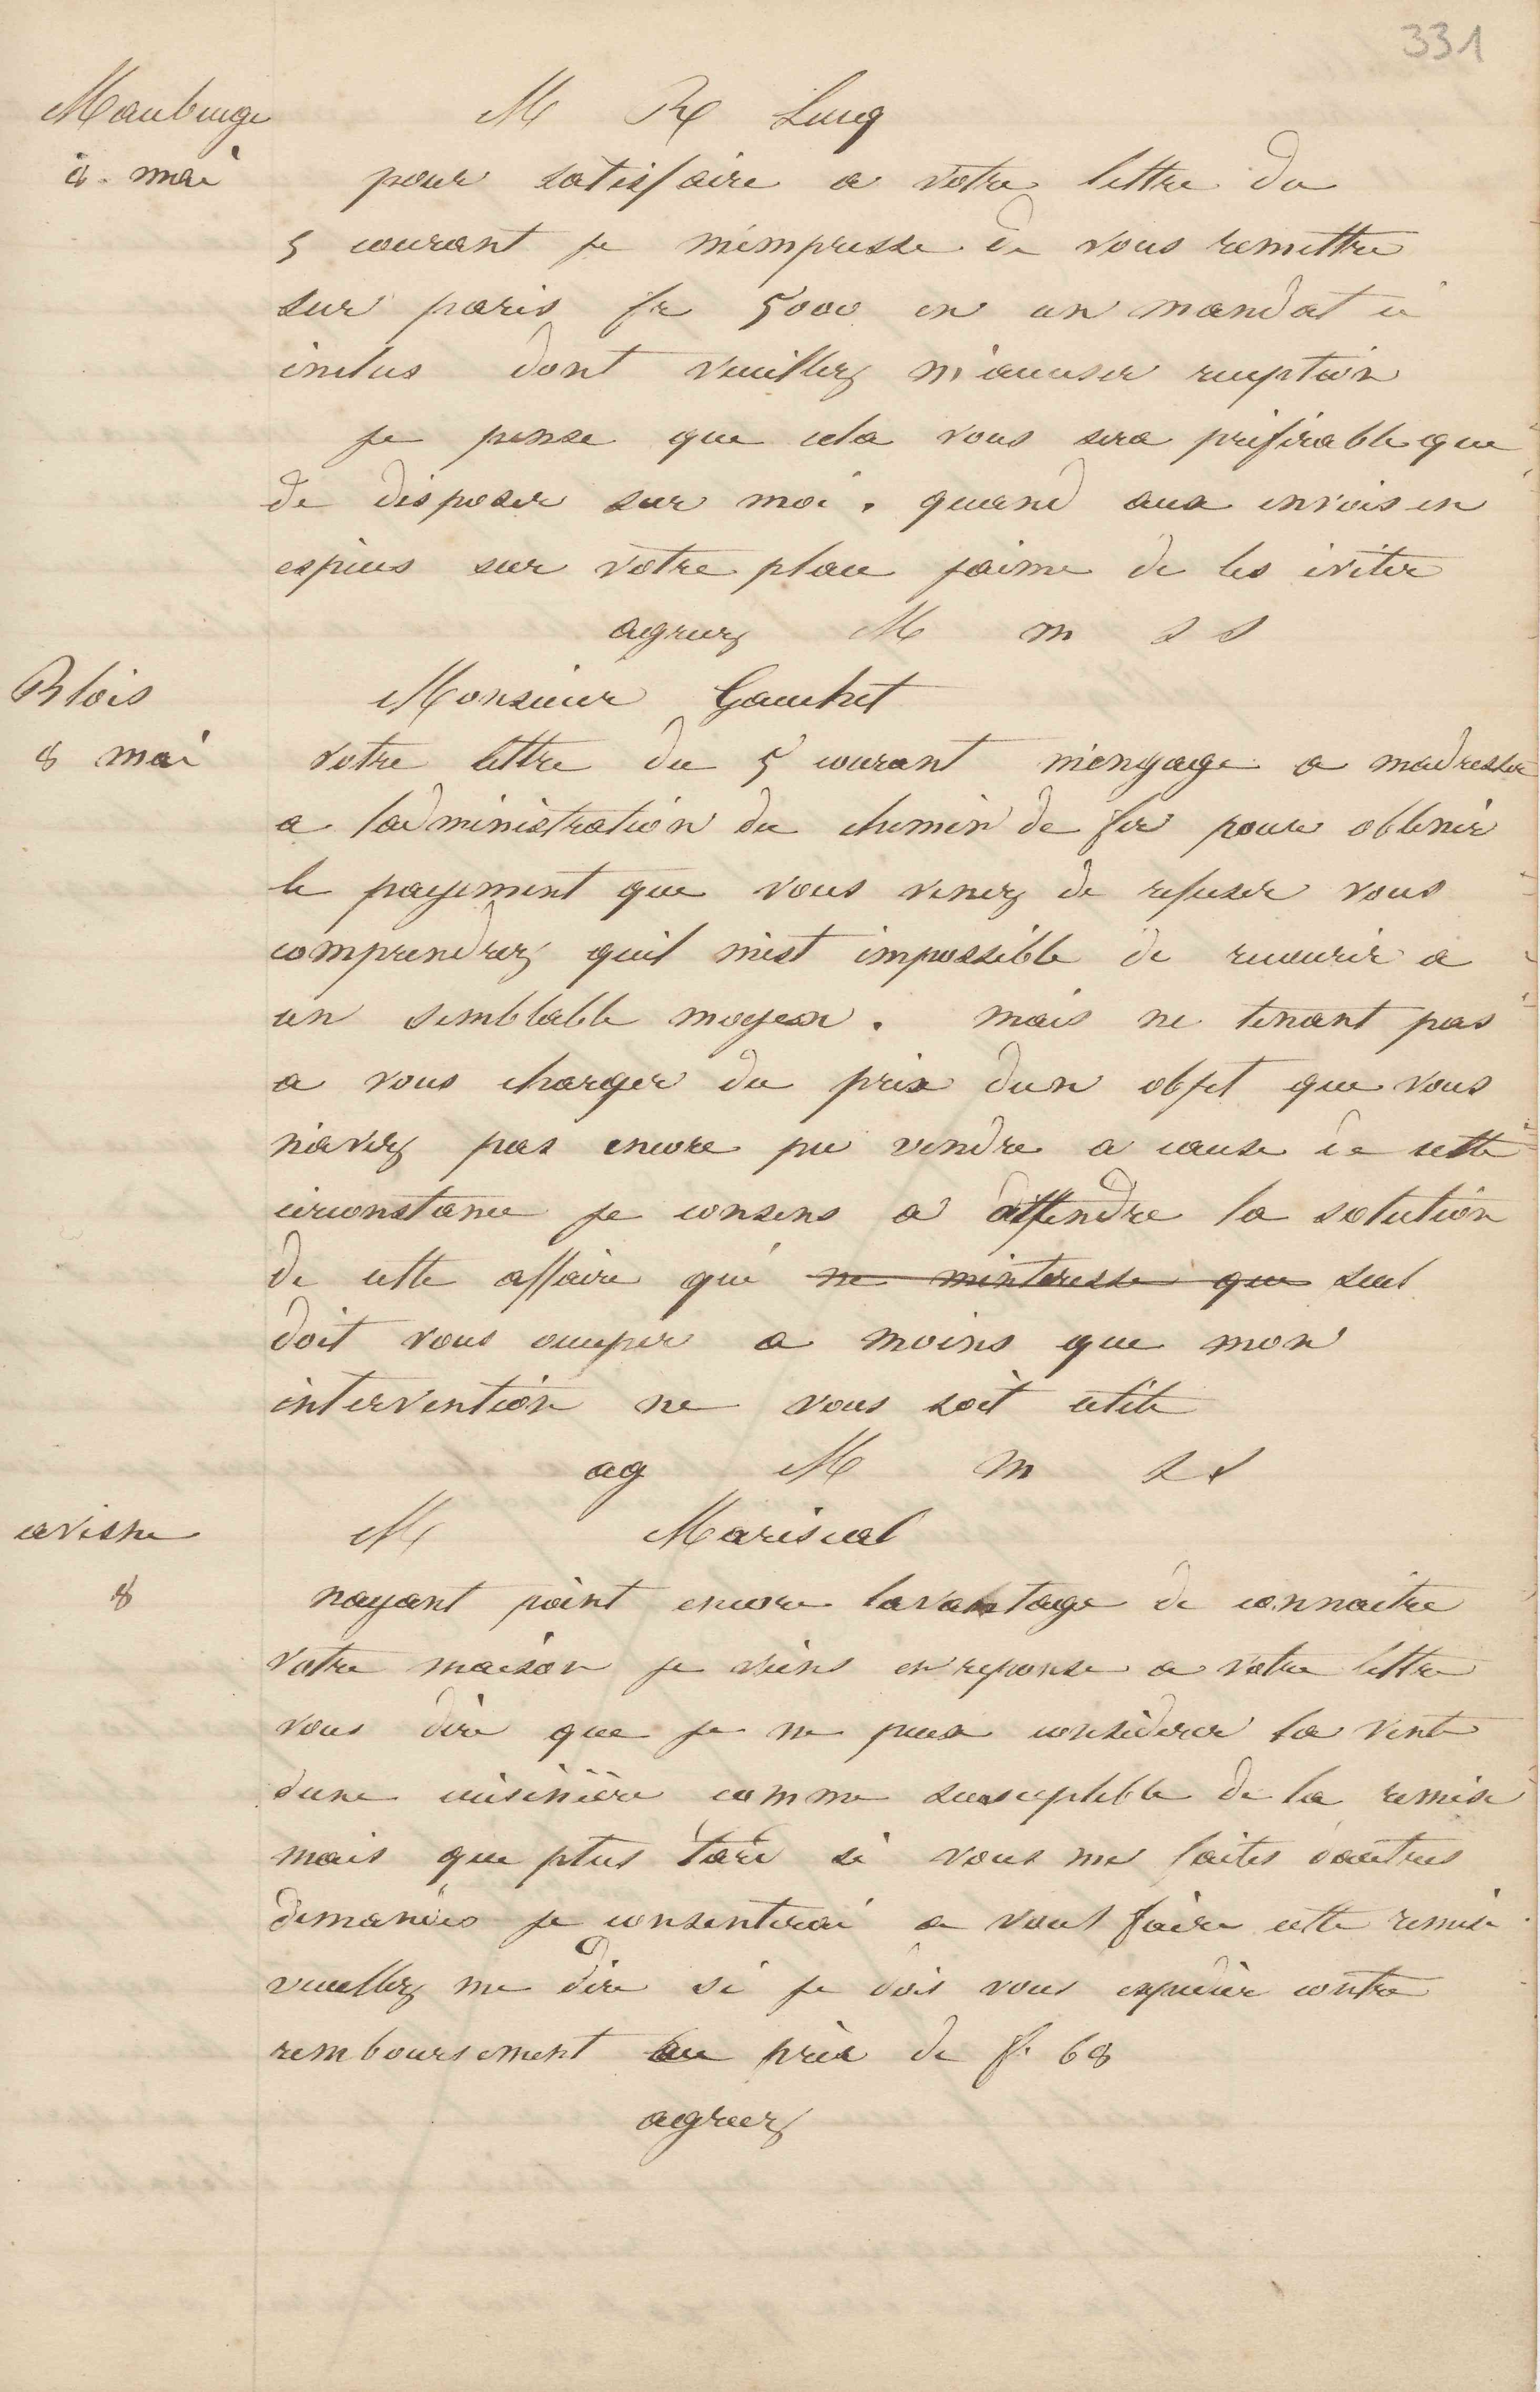 331
Maubeuge
8 mai
M R Lucq
pour satisfaire a votre lettre du
5 courant je m'empresse de vous remettre
sur paris fr 5000 en un mandat ci
inclus dont veuillez m'accuser reception
je pense que cela vous sera préférable que
de disposer sur moi. quand aux envois en
espèces sur votre place jaime de les éviter
agreez M m s s
Blois
8 mai
Monsieur Gauchet
votre lettre du 5 courant m'engage a madresser
a ladministration du chemin de fer pour obtenir
le payement que vous venez de refuser vous
comprendrez quil m'est impossible de recourir a
un semblable moyen. mais ne tenant pas
a vous charger du prix dun objet que vous
n'avez pas encore pu vendre a cause de cette
circonstance je consens a attendre la solution
de cette affaire qui ne minteresse que seul
doit vous occuper a moins que mon
intervention ne vous soit utile
ag M m s s
8
M Mariscal
nayant point encore lavantage de connaitre
votre maison je viens en reponse a votre lettre
vous dire que je ne peux considerer la vente
dune cuisinière comme susceptible de la remise
mais que plus tard si vous me faites dautres
demandes je consenterai a vous faire cette remise.
veuillez me dire si je dois vous expedier contre
remboursement au prix de f. 68
agreez